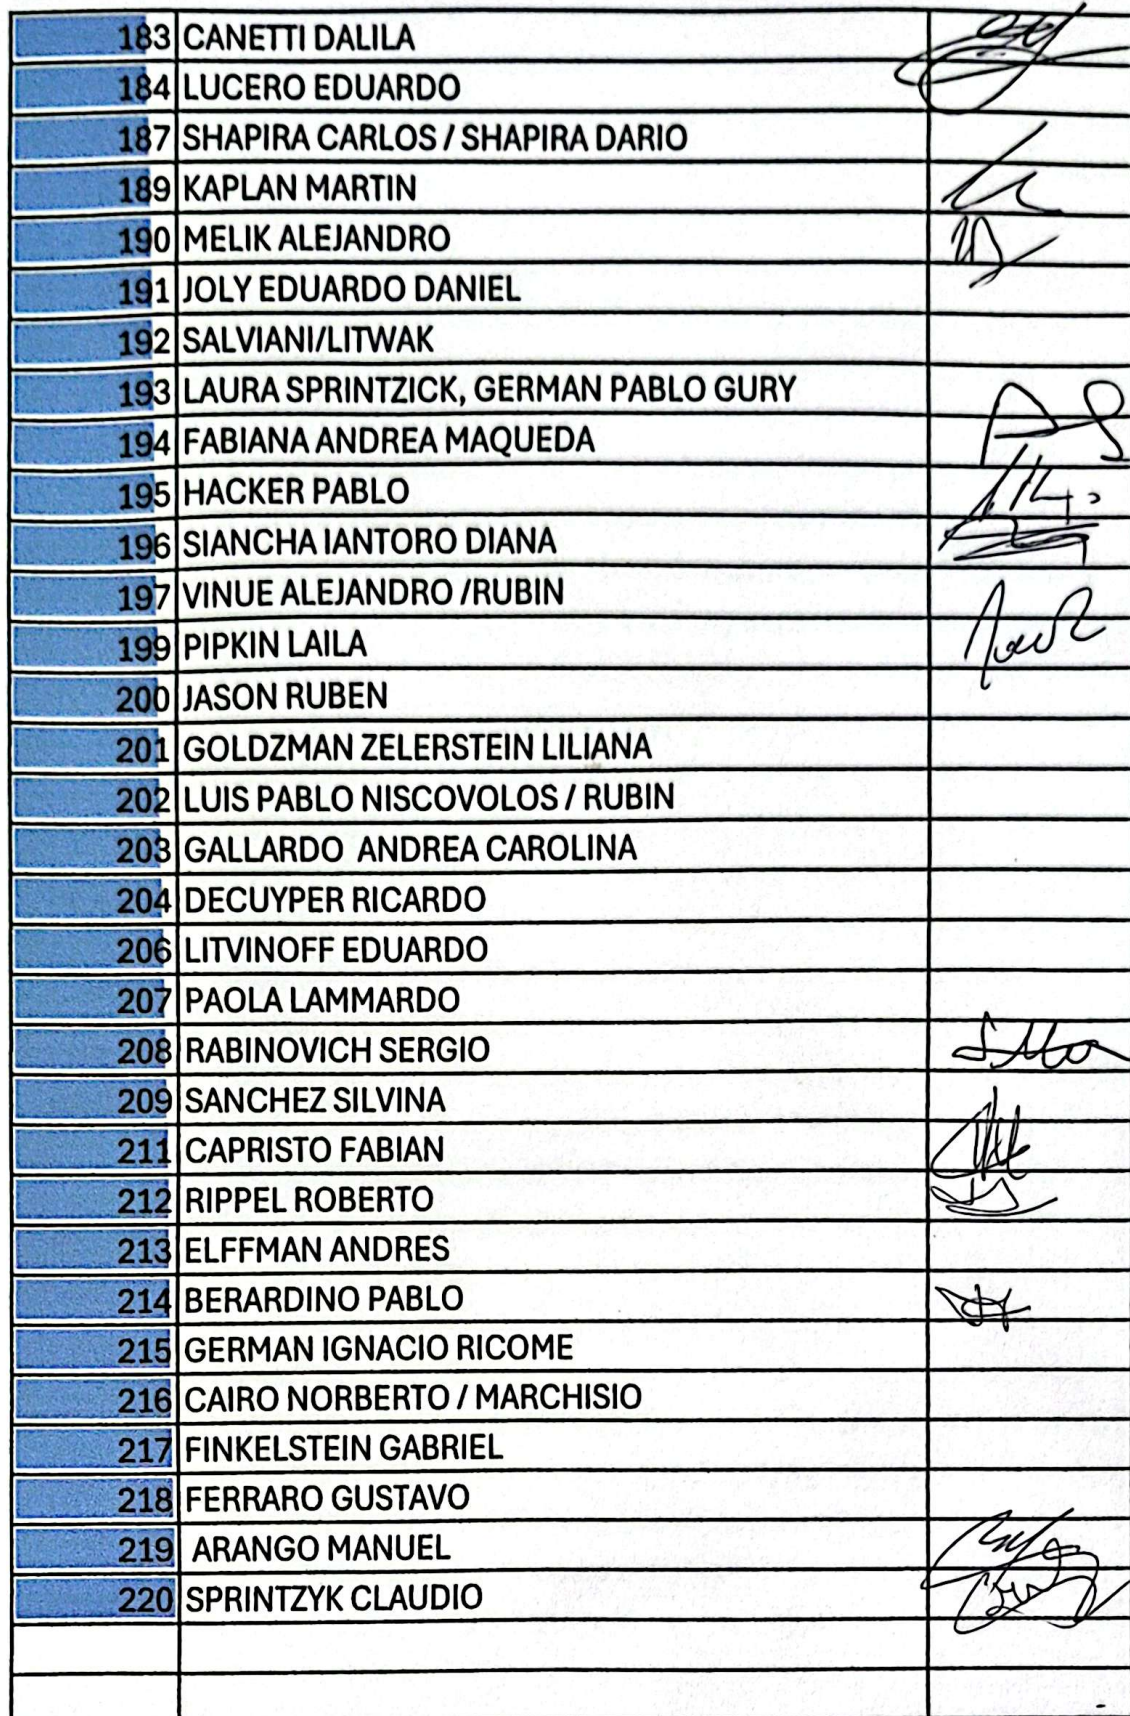 183 CANETTI DALILA
184 LUCERO EDUARDO
187 SHAPIRA CARLOS / SHAPIRA DARIO
189 KAPLAN MARTIN
190 MELIK ALEJANDRO
191 JOLY EDUARDO DANIEL
192 SALVIANI/LITWAK
193 LAURA SPRINTZICK, GERMAN PABLO GURY
194 FABIANA ANDREA MAQUEDA
195 HACKER PABLO
196 SIANCHA IANTORO DIANA
197 VINUE ALEJANDRO /RUBIN
199 PIPKIN LAILA
200 JASON RUBEN
201 GOLDZMAN ZELERSTEIN LILIANA
202 LUIS PABLO NISCOVOLOS / RUBIN
203 GALLARDO ANDREA CAROLINA
204 DECUYPER RICARDO
206 LITVINOFF EDUARDO
207 PAOLA LAMMARDO
208 RABINOVICH SERGIO
209 SANCHEZ SILVINA
211 CAPRISTO FABIAN
212 RIPPEL ROBERTO
213 ELFFMAN ANDRES
214 BERARDINO PABLO
215 GERMAN IGNACIO RICOME
216 CAIRO NORBERTO / MARCHISIO
217 FINKELSTEIN GABRIEL
218 FERRARO GUSTAVO
219 ARANGO MANUEL
220 SPRINTZYK CLAUDIO